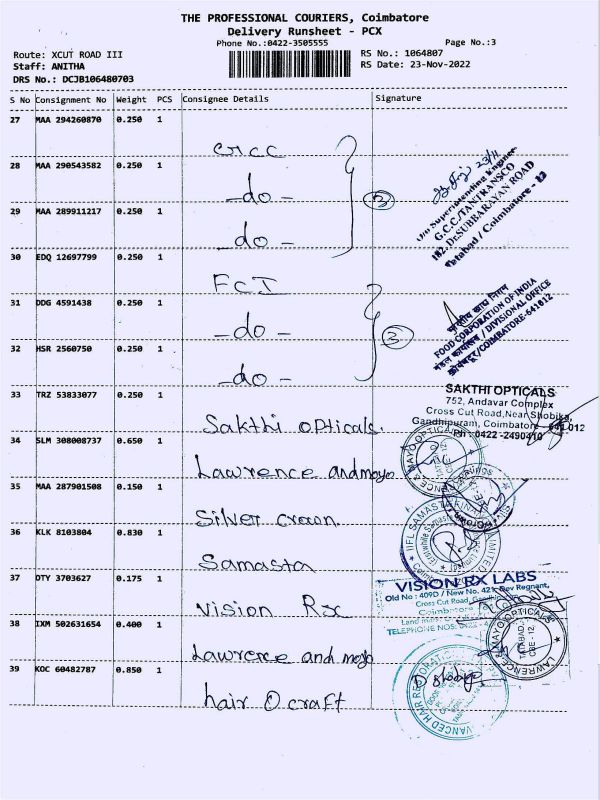 THE PROFESSIONAL COURIERS, Coimbatore
Delivery Runsheet - PCX
Phone No.:0422-3505555
Page No.:3
Route: XCUT ROAD III
RS No.: 1064807
Staff: ANITHA
RS Date: 23-Nov-2022
DRS No.: DCJB106480703
S No Consignment No Weight PCS Consignee Details Signature
27 MAA 294260870 0.250 1
GCC
28 MAA 290543582 0.250 1
-do-
29 MAA 289911217 0.250 1
-do-
3
23/11
O/o Superintending Engineer
G.C.C/TANTRANSCO
182, Dr.SUBBARAYAN ROAD
Tatabad / Coimbatore - 12
30 EDQ 12697799 0.250 1
FCI
31 DDG 4591438 0.250 1
-do-
32 HSR 2560750 0.250 1
-do-
3
भारतीय खाद्य निगम
FOOD CORPORATION OF INDIA
मंडल कार्यालय / DIVISIONAL OFFICE
कोयंबत्तूर/COIMBATORE-641012
33 TRZ 53833077 0.250 1
Sakthi opticals.
SAKTHI OPTICALS
752, Andavar Complex
Cross Cut Road,Near Shobika,
Gandhipuram, Coimbatore - 641 012
Ph : 0422 -2490410
34 SLM 308008737 0.650 1
Lawrence and mayo
LAWRENCE & MAYO OPTICALS
35 MAA 287901508 0.150 1
Silver crown
36 KLK 8103804 0.830 1
Samasta
IIFL SAMASTA
37 DTY 3703627 0.175 1
Vision Rx
VISION RX LABS
Old No : 409D / New No. 421, Dev Regnant,
Cross Cut Road,
Coimbatore
TELEPHONE NOS:
38 IXM 502631654 0.400 1
Lawrence and mayo
LAWRENCE & MAYO OPTICALS
TATABAD
CBE-12
39 KOC 60482787 0.850 1
hair O craft
ADVANCED HAIR RESTORATION